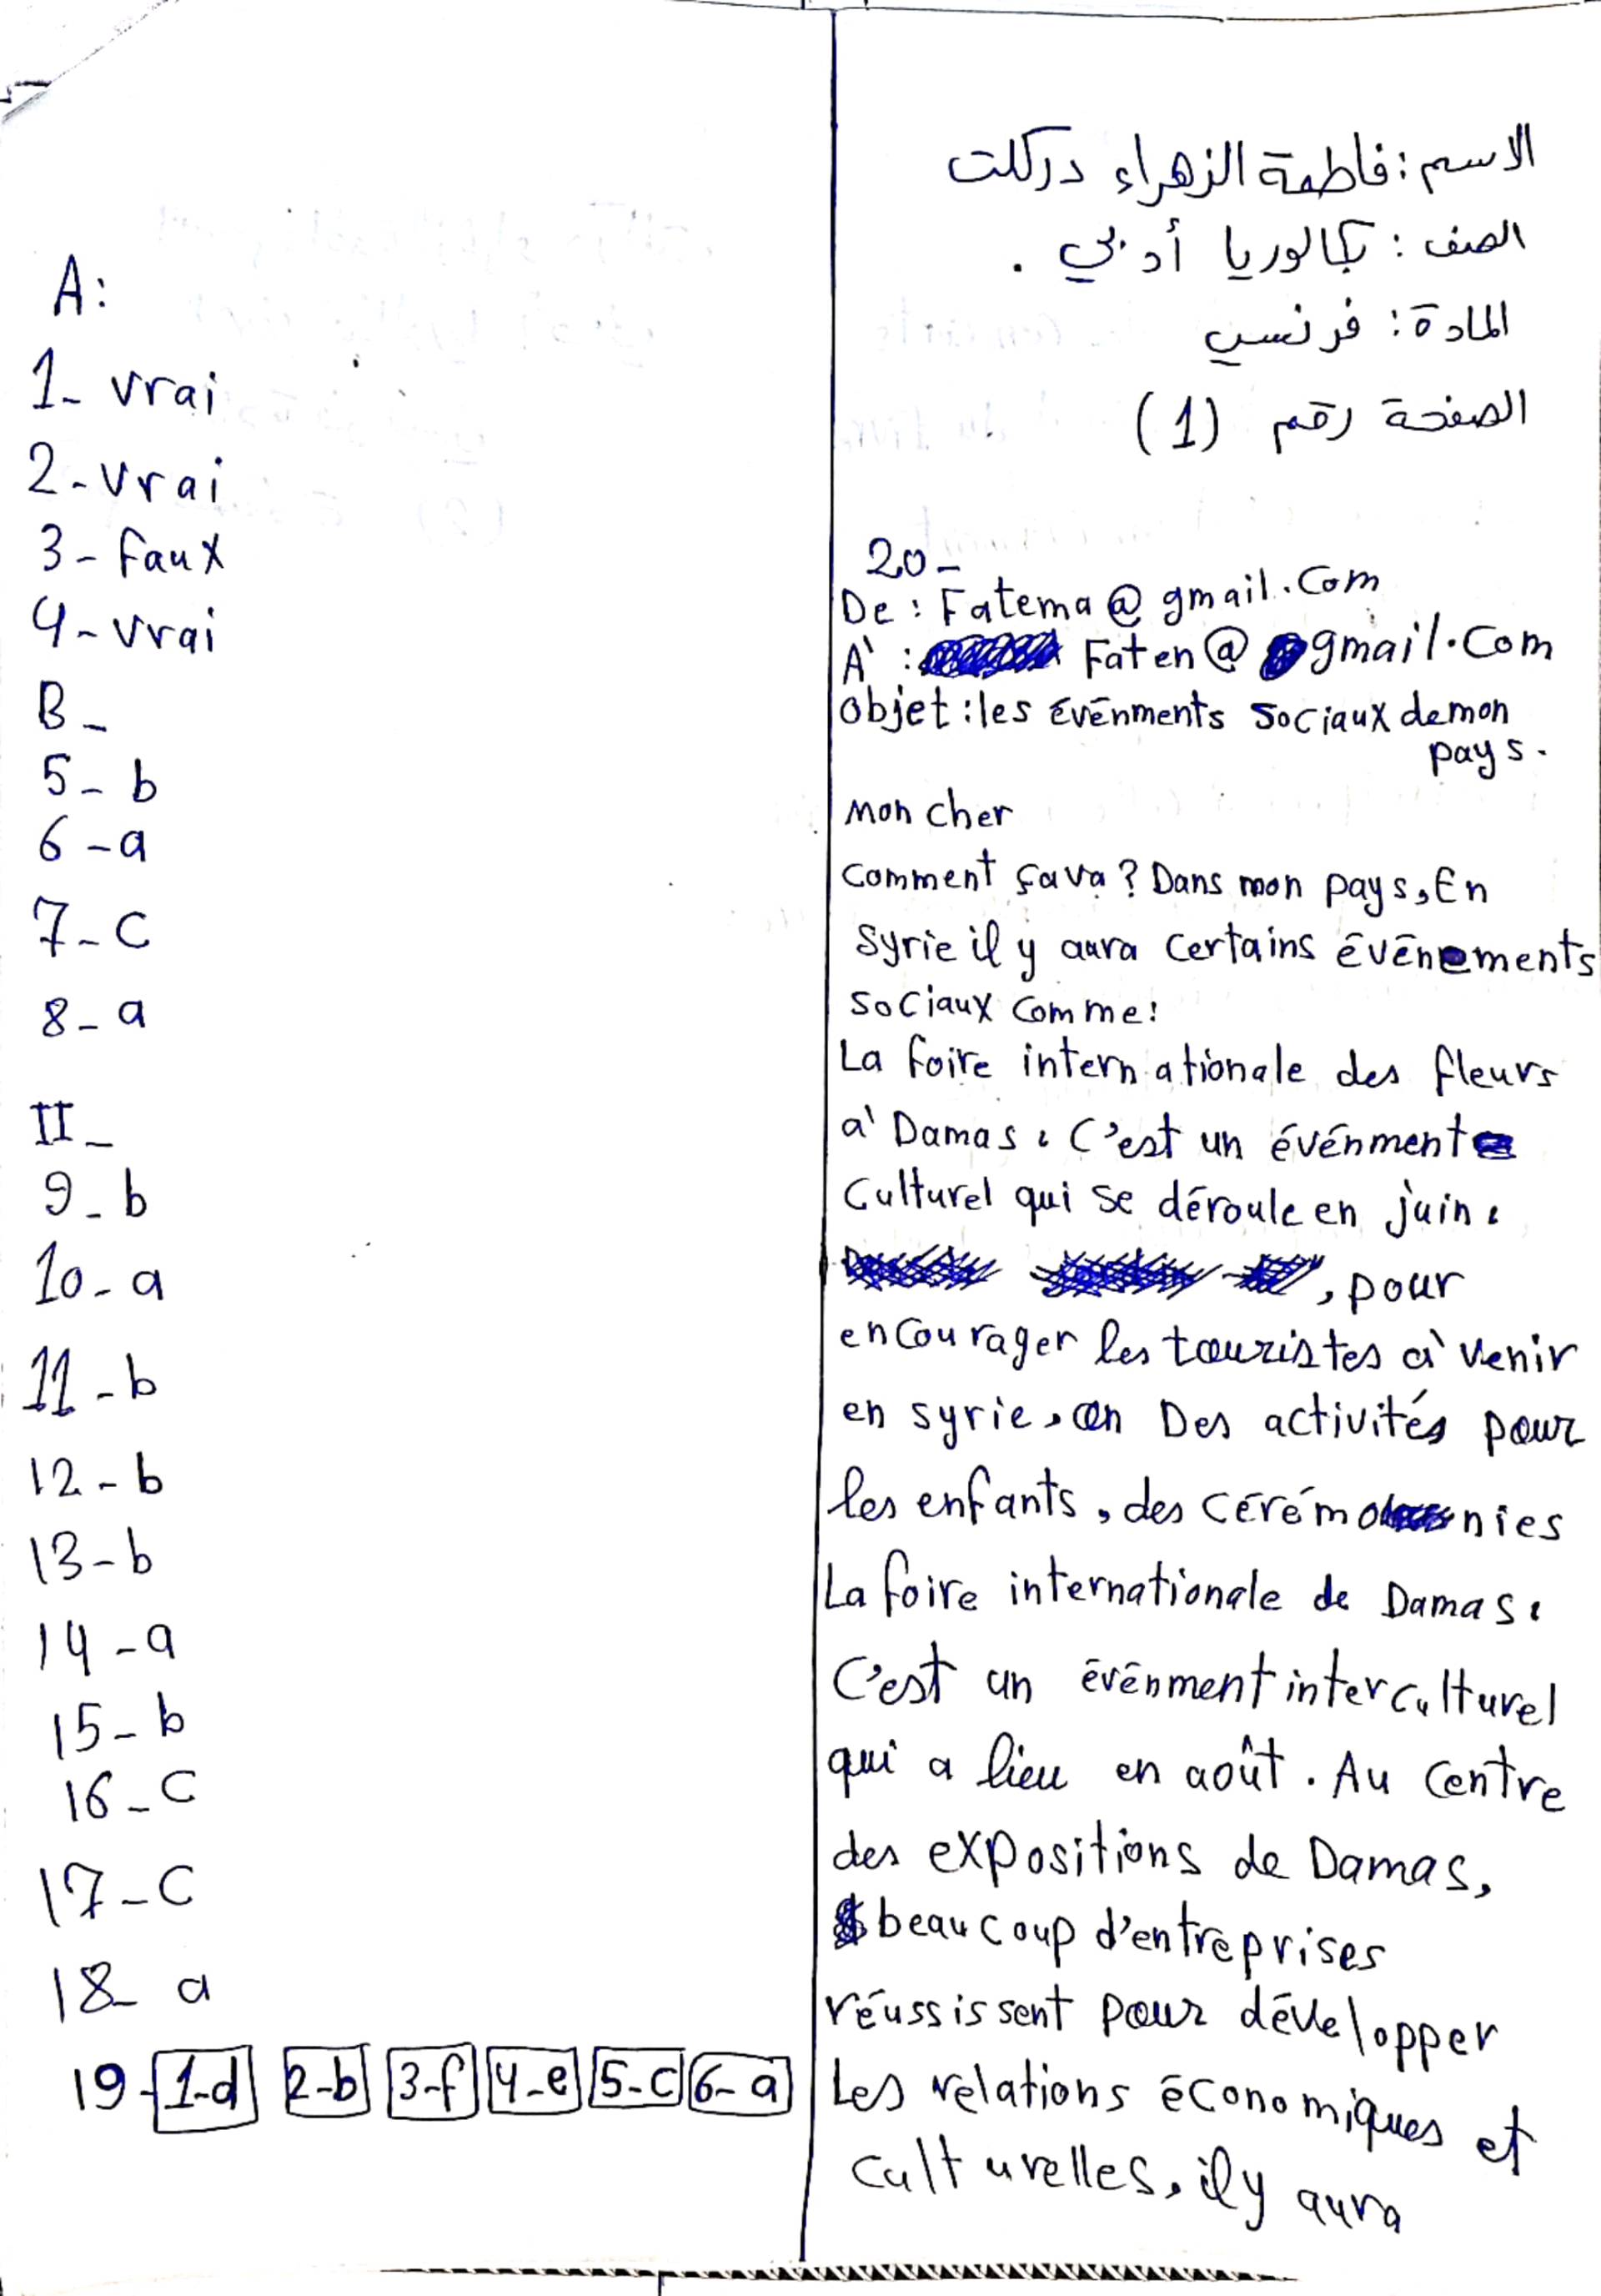 A:
1- vrai
2- vrai
3- faux
4- vrai
B-
5- b
6-a
7-c
8-a
II-
9-b
10-a
11-b
12-b
13-b
14-a
15-b
16-c
17-c
18-a
19- 1-d 2-b 3-f 4-e 5-c 6-a
الاسم: فاطمة الزهراء دركلت
الصف: بكالوريا أدبي.
المادة: فرنسي
الصفحة رقم (1)
20-
De: Fatema@gmail.com
À: Faten@gmail.com
objet: les événments sociaux de mon
pays.
Mon cher
comment ça va? Dans mon pays, En
syrie il y aura certains événements
sociaux comme:
La foire internationale des fleurs
à Damas: C'est un événment
culturel qui se déroule en juin:
, pour
encourager les touristes à venir
en syrie, on Des activités pour
les enfants, des cérémonies
La foire internationale de Damas:
C'est un événment interculturel
qui a lieu en août. Au centre
des expositions de Damas,
beaucoup d'entreprises
réussissent pour développer
Les relations économiques et
culturelles, il y aura